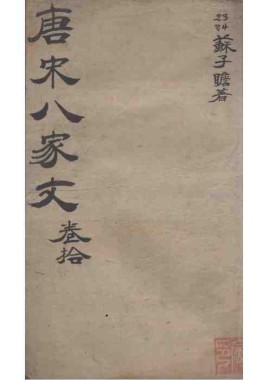 23
24
蘇子瞻著
唐宋八家文
卷拾